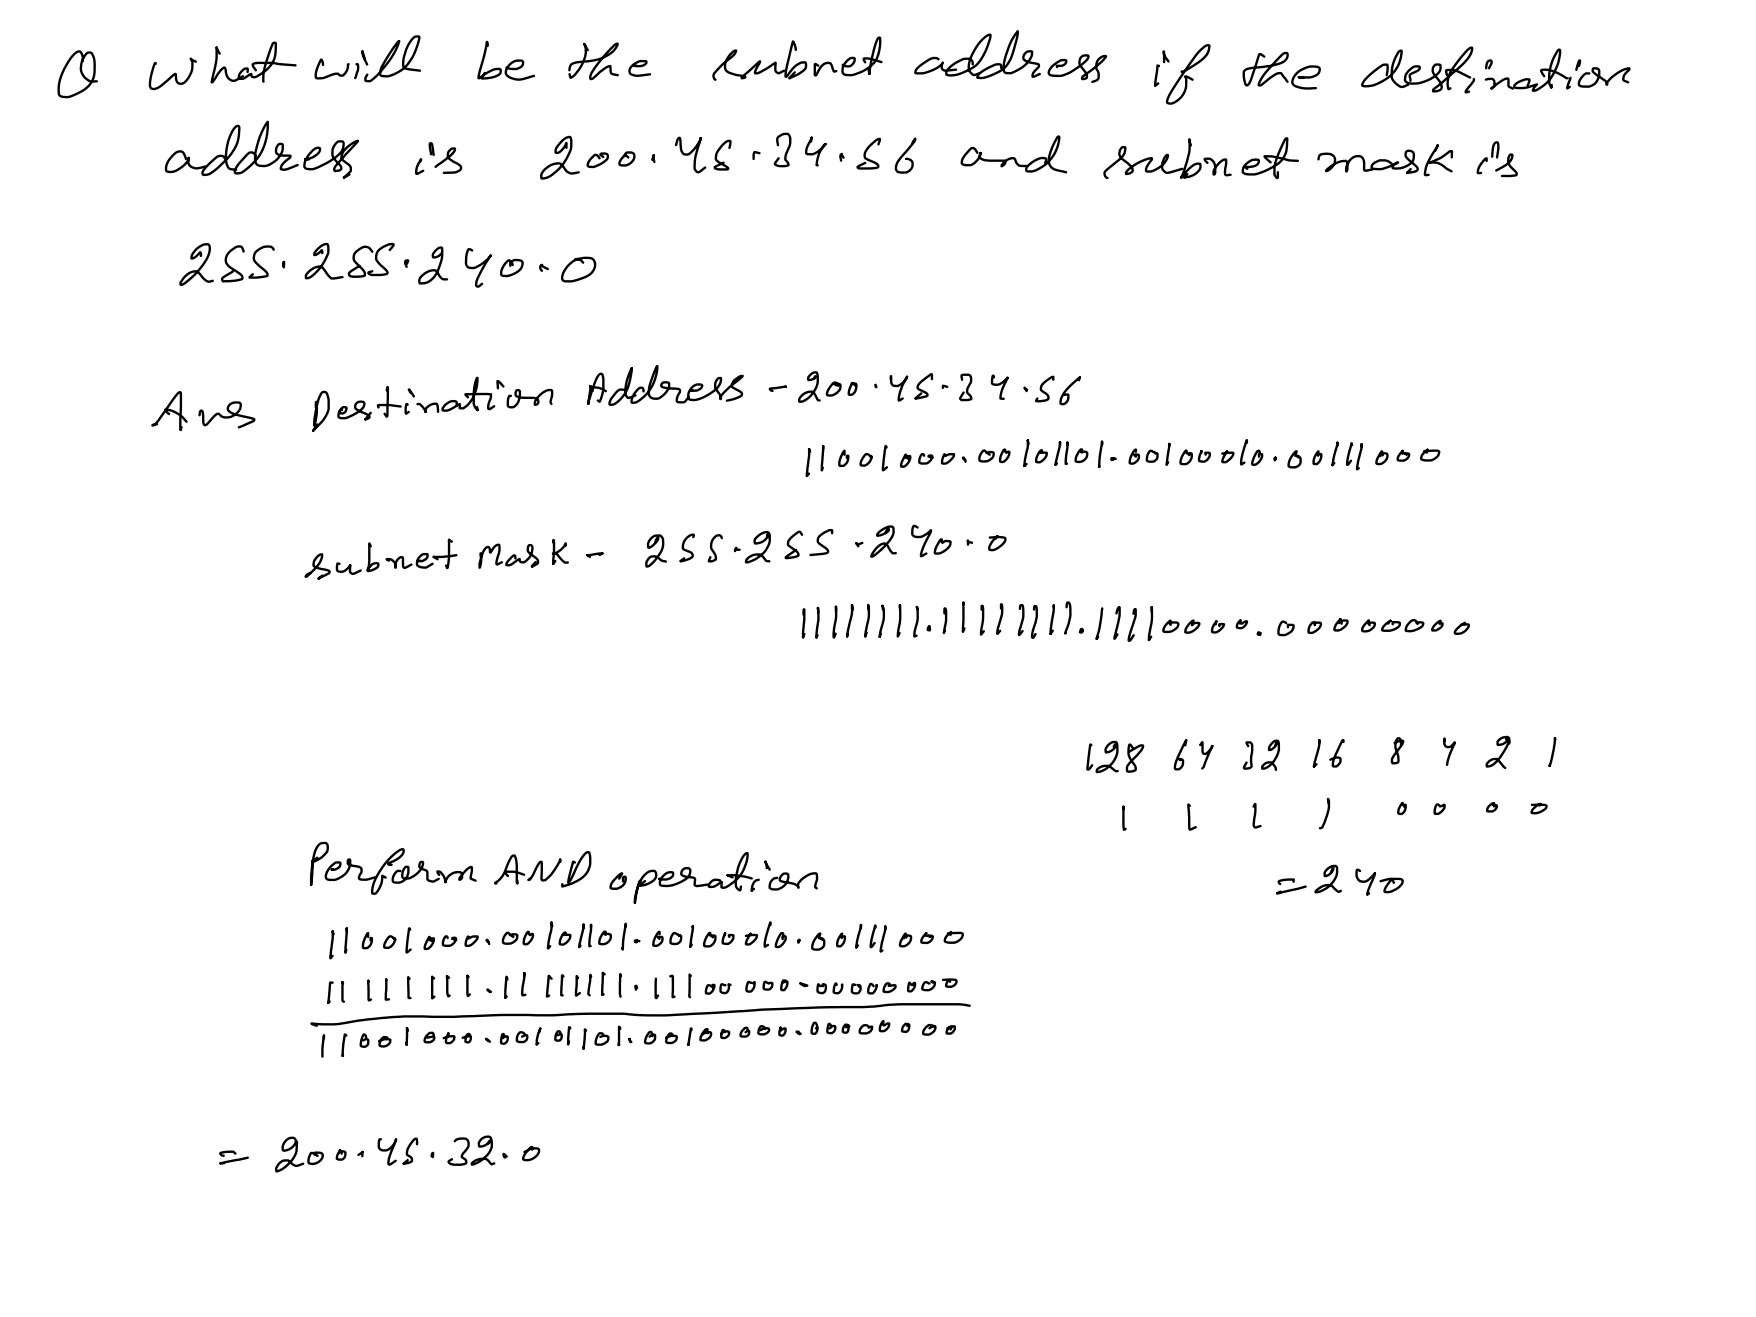 Q What will be the subnet address if the destination
address is 200.45.34.56 and subnet mask is
255.255.240.0
Ans Destination Address - 200.45.34.56
11001000.00101101.00100010.00111000
subnet Mask - 255.255.240.0
11111111.11111111.11110000.00000000
128 64 32 16 8 4 2 1
1 1 1 1 0 0 0 0
Perform AND operation
= 240
11001000.00101101.00100010.00111000
11111111.11111111.11100000.00000000
11001000.00101101.00100000.00000000
= 200.45.32.0